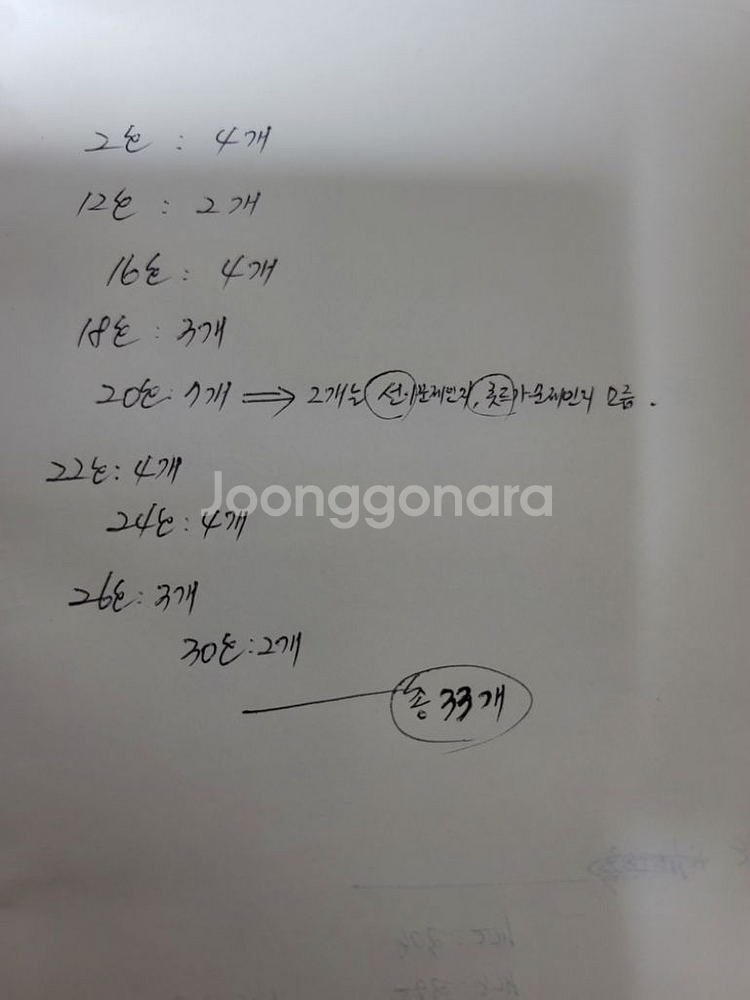 2논 : 4개
12논 : 2개
16논 : 4개
18논 : 3개
20논 : 7개 ⇒ 2개는 선이문제인지, 훗르가문제인지 모름.
22논 : 4개
Joonggonara
24논 : 4개
26논 : 3개
30논 : 2개
총 33개